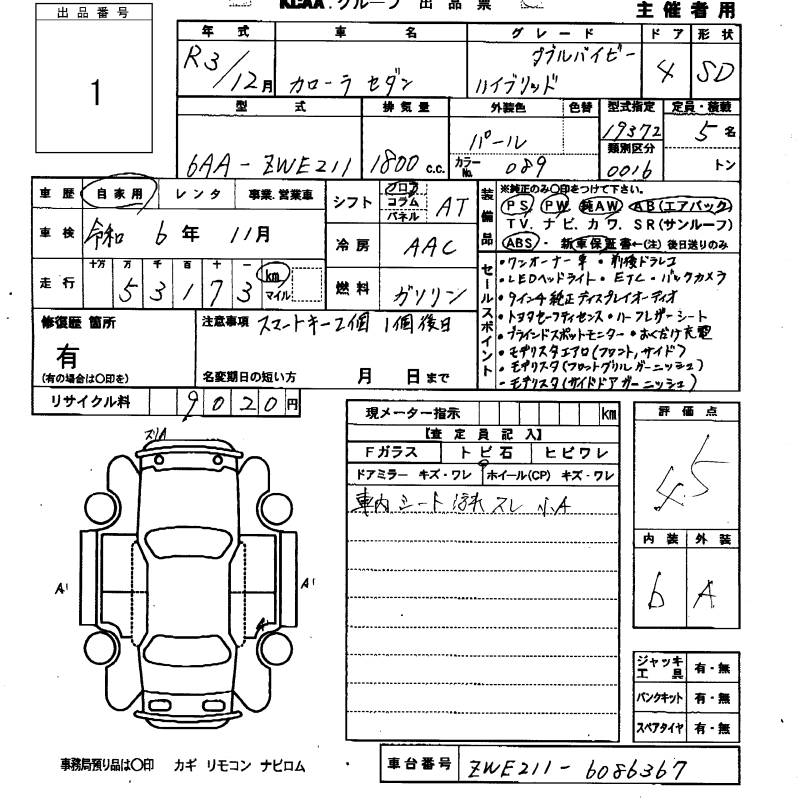 KCAA.グループ 出品票
主催者用
出品番号
1
年式 車名 グレード ドア 形状
R3/12月 カローラ セダン ダブルバイビー ハイブリッド 4 SD
型式 排気量 外装色 色替 型式指定 定員・積載
6AA-ZWE211 1800 c.c. パール 19372 5名
カラーNo. 089 類別区分 0016 トン
車歴 自家用 レンタ 事業.営業車
車検 令和 6年 11月
走行 十万 万 千 百 十 一
5 3 1 7 3 km マイル
シフト フロア コラム パネル AT
冷房 AAC
燃料 ガソリン
装備品 ※純正のみ〇印をつけて下さい。
PS PW 純AW AB(エアバック)
TV. ナビ. カワ. SR(サンルーフ)
ABS ・ 新車保証書←(注)後日送りのみ
セールスポイント
・ワンオーナー車 ・前後ドラレコ
・LEDヘッドライト ・ETC ・バックカメラ
・9インチ純正ディスプレイオーディオ
・トヨタセーフティセンス ・ハーフレザーシート
・ブラインドスポットモニター ・おくだけ充電
・モデリスタエアロ(フロント,サイド)
・モデリスタ(フロントグリルガーニッシュ)
・モデリスタ(サイドドアガーニッシュ)
修復歴 箇所
有
(有の場合は〇印を)
注意事項 スマートキー2個 1個後日
名変期日の短い方 月 日まで
リサイクル料 9020円
現メーター指示 km
【査定員記入】
Fガラス トビ石 ヒビワレ
ドアミラー キズ・ワレ ホイール(CP) キズ・ワレ
車内シート汚れ スレ 小A
評価点
4.5
内装 外装
b A
ズリA
A'
A'
A'
ジャッキ工具 有・無
パンクキット 有・無
スペアタイヤ 有・無
事務局預り品は〇印 カギ リモコン ナビロム
車台番号 ZWE211-6086367